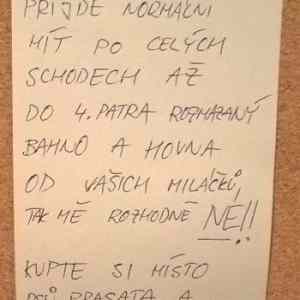 PŘIJDE NORMÁLNÍ
MÍT PO CELÝCH
SCHODECH AŽ
DO 4. PATRA ROZMAZANÝ
BAHNO A HOVNA
OD VAŠICH MILÁČKŮ,
TAK MĚ ROZHODNĚ NE!!
KUPTE SI MÍSTO
PSŮ PRASATA A